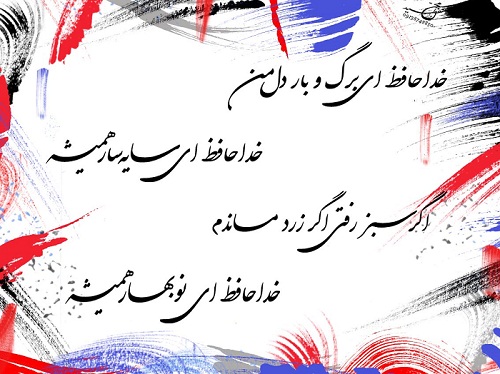 خداحافظ ای برگ و بار دل من
خداحافظ ای سایه سار همیشه
اگر سبز رفتی اگر زرد ماندم
خداحافظ ای نوبهار همیشه